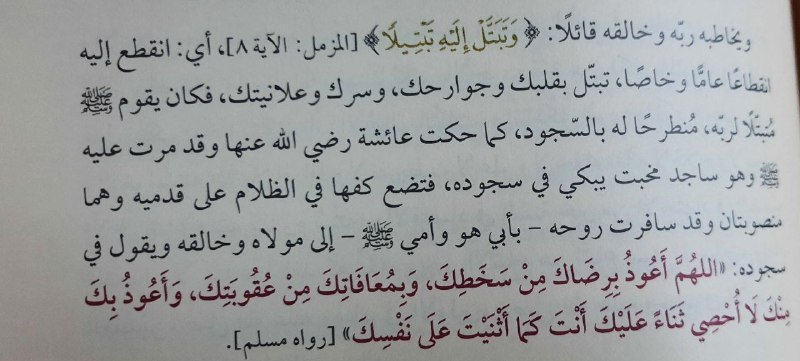 ويخاطبه ربّه وخالقه قائلًا: ﴿ وَتَبَتَّلْ إِلَيْهِ تَبْتِيلًا ﴾ [المزمل: الآية ٨]، أي: انقطع إليه
انقطاعًا عامًّا وخاصًّا، تبتّل بقلبك وجوارحك، وسرك وعلانيتك، فكان يقوم ﷺ
مُتبتّلًا لربّه، مُنطرحًا له بالسّجود، كما حكت عائشة رضي الله عنها وقد مرت عليه
ﷺ وهو ساجد مخبت يبكي في سجوده، فتضع كفها في الظلام على قدميه وهما
منصوبتان وقد سافرت روحه - بأبي هو وأمي ﷺ - إلى مولاه وخالقه ويقول في
سجوده: «اللهُمَّ أَعُوذُ بِرِضَاكَ مِنْ سَخَطِكَ، وَبِمُعَافَاتِكَ مِنْ عُقُوبَتِكَ، وَأَعُوذُ بِكَ
مِنْكَ لَا أُحْصِي ثَنَاءً عَلَيْكَ أَنْتَ كَمَا أَثْنَيْتَ عَلَى نَفْسِكَ» [رواه مسلم].